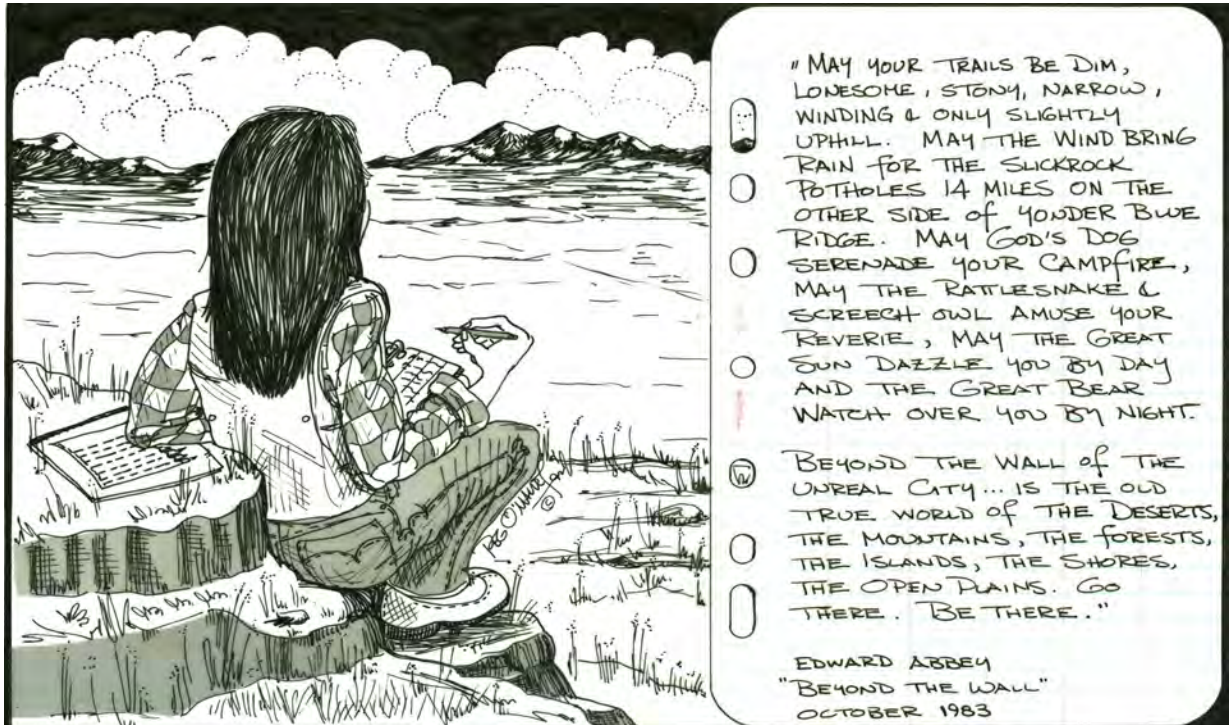 " MAY YOUR TRAILS BE DIM,
LONESOME, STONY, NARROW,
WINDING & ONLY SLIGHTLY
UPHILL. MAY THE WIND BRING
RAIN FOR THE SLICKROCK
POTHOLES 14 MILES ON THE
OTHER SIDE OF YONDER BLUE
RIDGE. MAY GOD'S DOG
SERENADE YOUR CAMPFIRE,
MAY THE RATTLESNAKE &
SCREECH OWL AMUSE YOUR
REVERIE, MAY THE GREAT
SUN DAZZLE YOU BY DAY
AND THE GREAT BEAR
WATCH OVER YOU BY NIGHT.
BEYOND THE WALL OF THE
UNREAL CITY... IS THE OLD
TRUE WORLD OF THE DESERTS,
THE MOUNTAINS, THE FORESTS,
THE ISLANDS, THE SHORES,
THE OPEN PLAINS. GO
THERE. BE THERE."
EDWARD ABBEY
"BEYOND THE WALL"
OCTOBER 1983